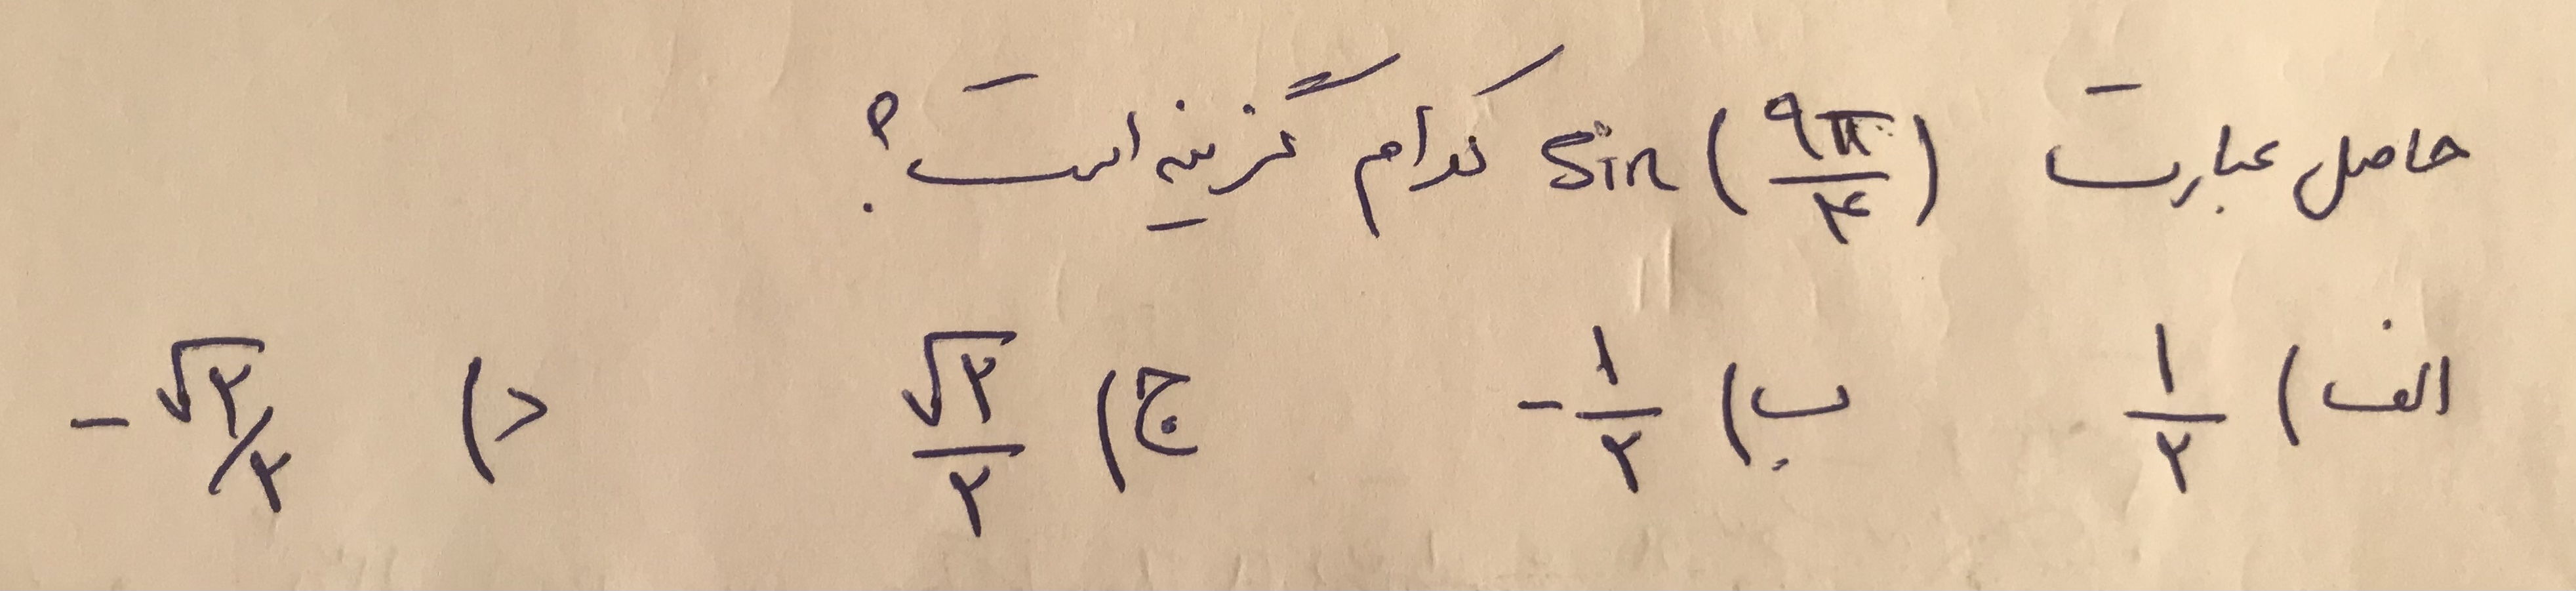 حاصل عبارت sin(۹π/۴) کدام گزینه است؟
الف) ۱/۲ ب) -۱/۲ ج) √۲/۲ د) -√۲/۲